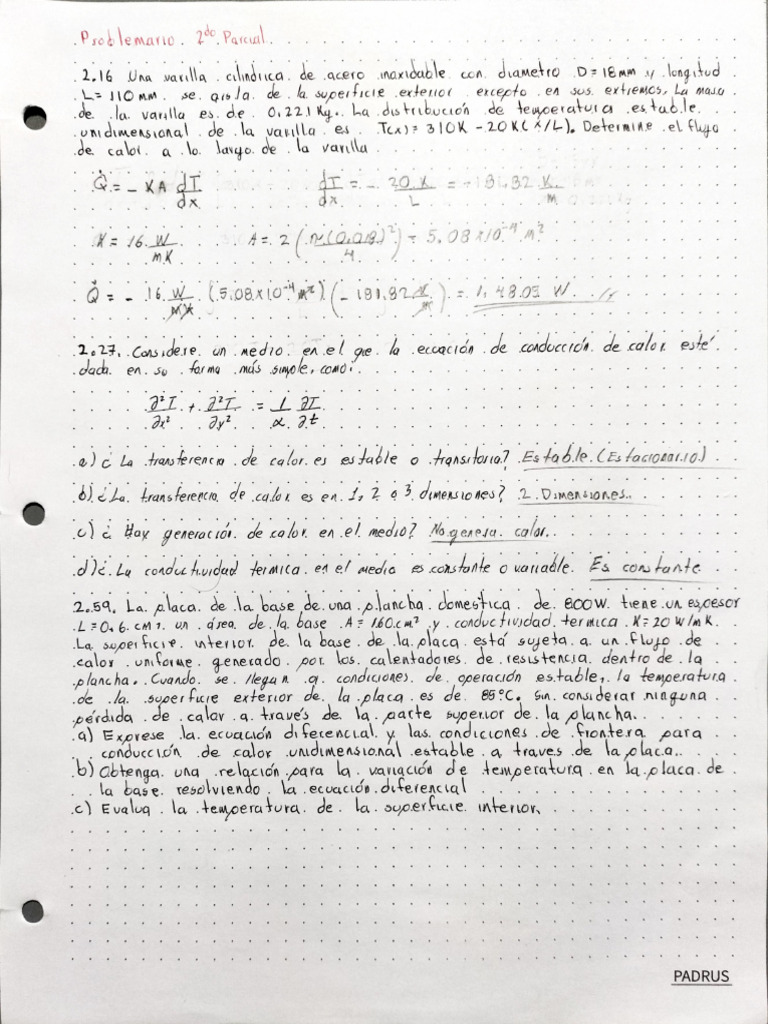 Problemario 2do Parcial
2.16 Una varilla cilindrica de acero inoxidable con diametro D=18mm y longitud
L=110mm se aisla de la superficie exterior excepto en sus extremos. La masa
de la varilla es de 0.221 Kg. La distribución de temperatura estable
unidimensional de la varilla es T(x)=310K-20K(x/L). Determine el flujo
de calor a lo largo de la varilla
Q̇ = - KA dT/dx dT/dx = - 20 K/L = -181.82 K/m
K = 16 W/mK A = 2 (π(0.018)²/4) = 5.08x10⁻⁴ m²
Q̇ = - 16 W/mK (5.08x10⁻⁴ m²) (-181.82 K/m) = 1.4803 W
2.27. Considere un medio en el que la ecuación de conducción de calor esté
dada en su forma más simple, como:
∂²T/∂x² + ∂²T/∂y² = 1/α ∂T/∂t
a) ¿ La transferencia de calor es estable o transitoria? Estable (Estacionario)
b) ¿La transferencia de calor es en 1, 2 o 3 dimensiones? 2 Dimensiones
c) ¿ Hay generación de calor en el medio? No genera calor.
d) ¿ La conductividad termica en el medio es constante o variable. Es constante
2.59. La placa de la base de una plancha domestica de 800W tiene un espesor
L=0.6 cm, un área de la base A=160cm² y conductividad termica K=20 W/mK.
La superficie interior de la base de la placa está sujeta a un flujo de
calor uniforme generado por los calentadores de resistencia dentro de la
plancha. Cuando se llegan a condiciones de operación estable, la temperatura
de la superficie exterior de la placa es de 85°C. Sin considerar ninguna
pérdida de calor a través de la parte superior de la plancha.
a) Exprese la ecuación diferencial y las condiciones de frontera para
conducción de calor unidimensional estable a traves de la placa.
b) Obtenga una relación para la variación de temperatura en la placa de
la base resolviendo la ecuación diferencial
c) Evalua la temperatura de la superficie interior.
PADRUS